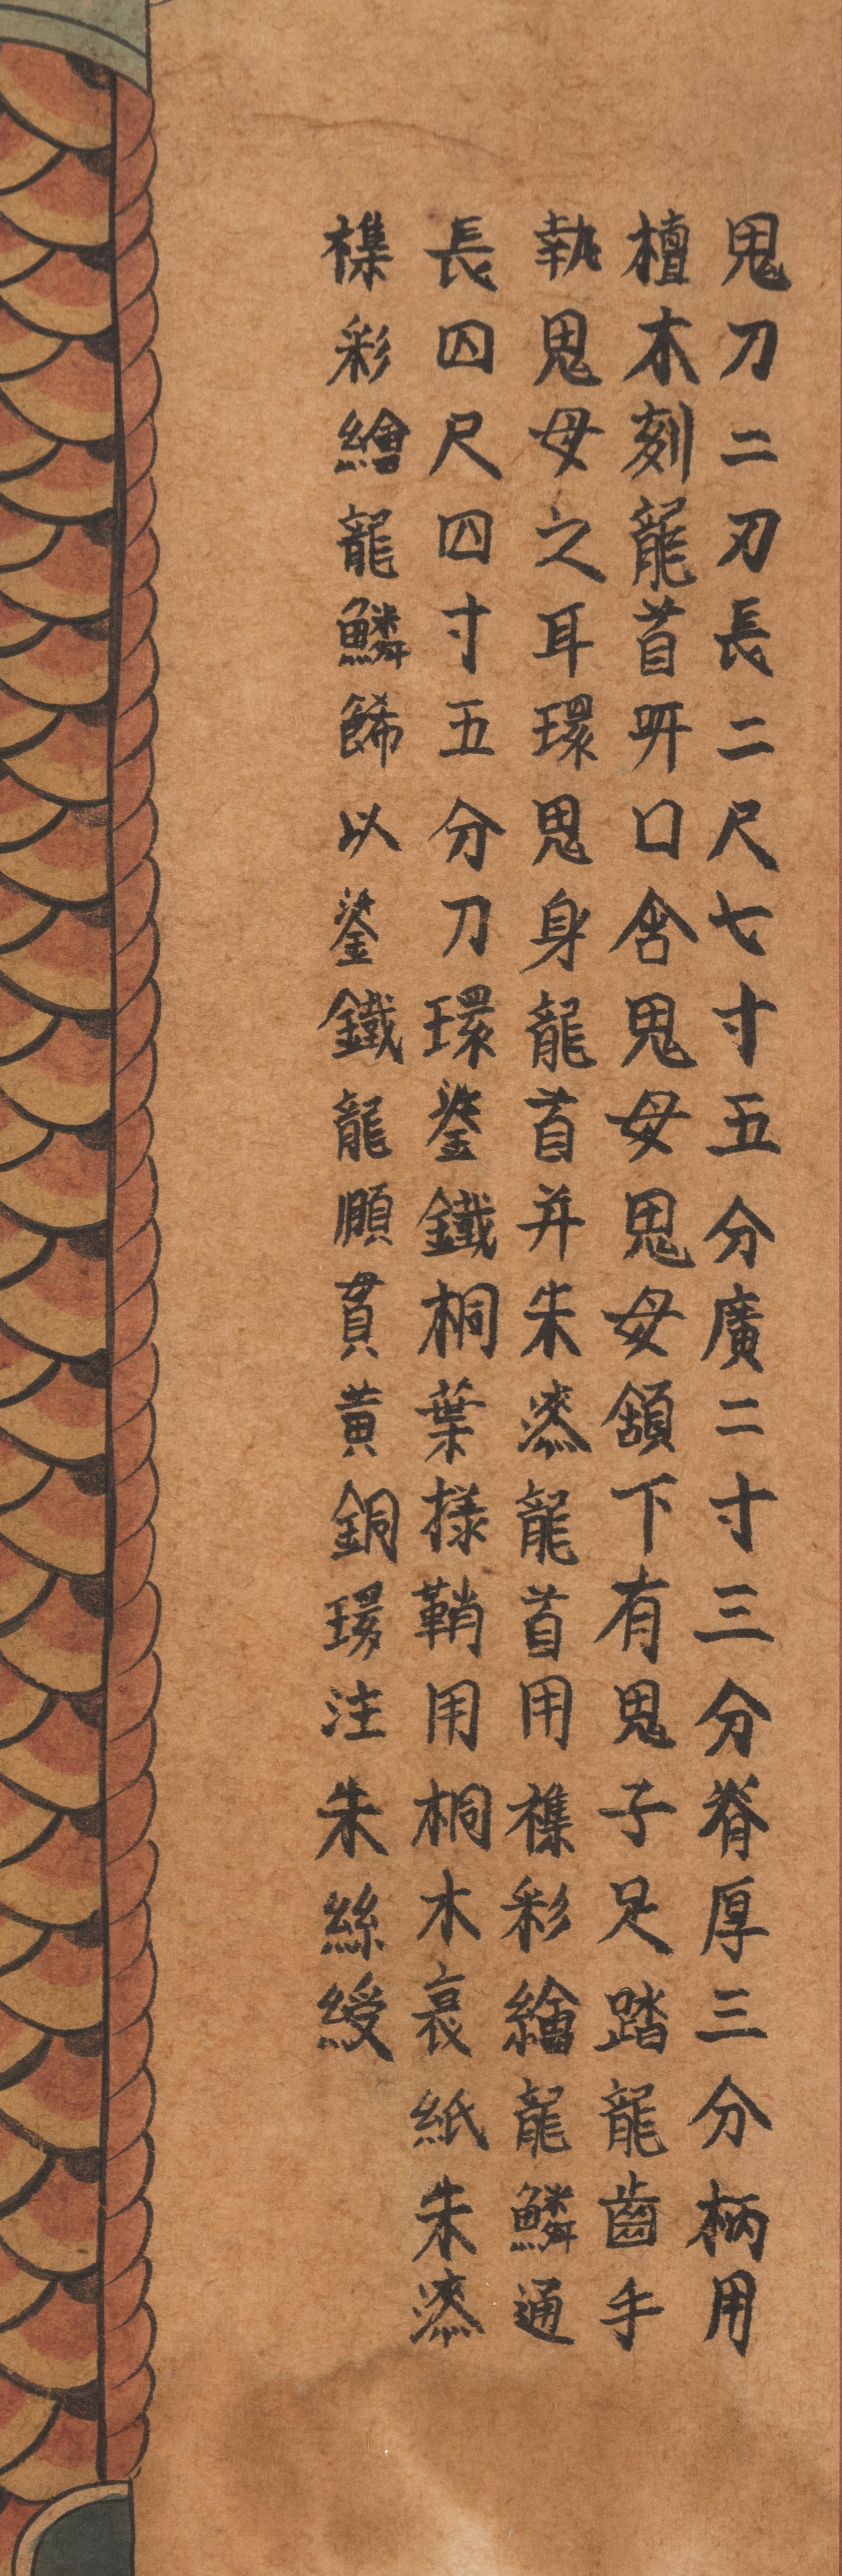 鬼刀二刃長二尺七寸五分廣二寸三分脊厚三分柄用
檀木刻龍首開口含鬼母鬼母頷下有鬼子足踏龍齒手
執鬼母之耳環鬼身龍首并朱漆龍首用襍彩繪龍鱗通
長四尺四寸五分刀環鋈鐵桐葉様鞘用桐木裹紙朱漆
襍彩繪龍鱗餙以鋈鐵龍頤貫黄銅環注朱絲綬